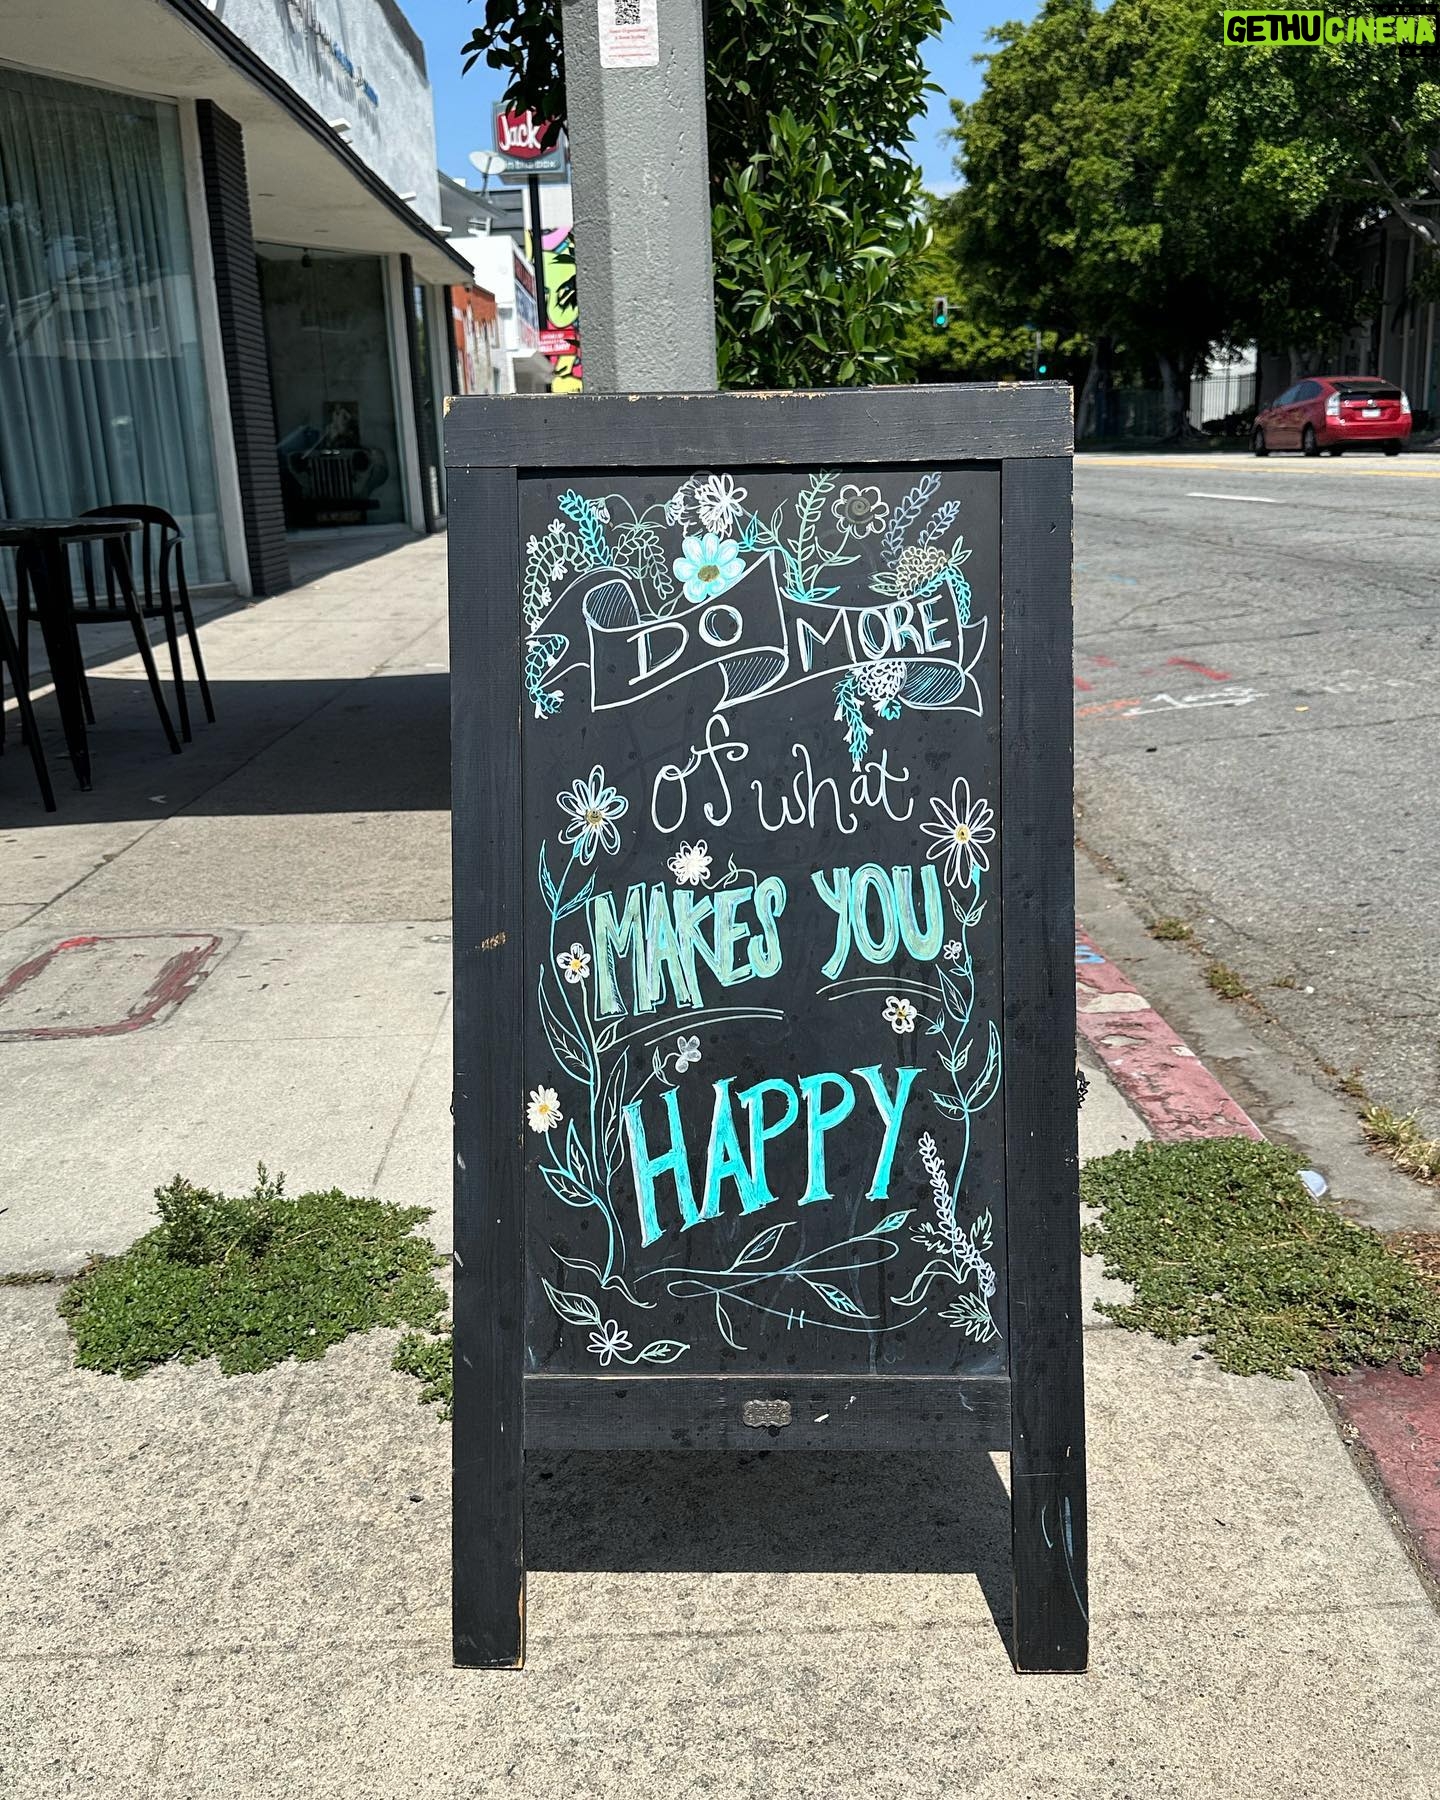 GETHUCINEMA
Jack
in the box
DO MORE
of what
MAKES YOU
HAPPY